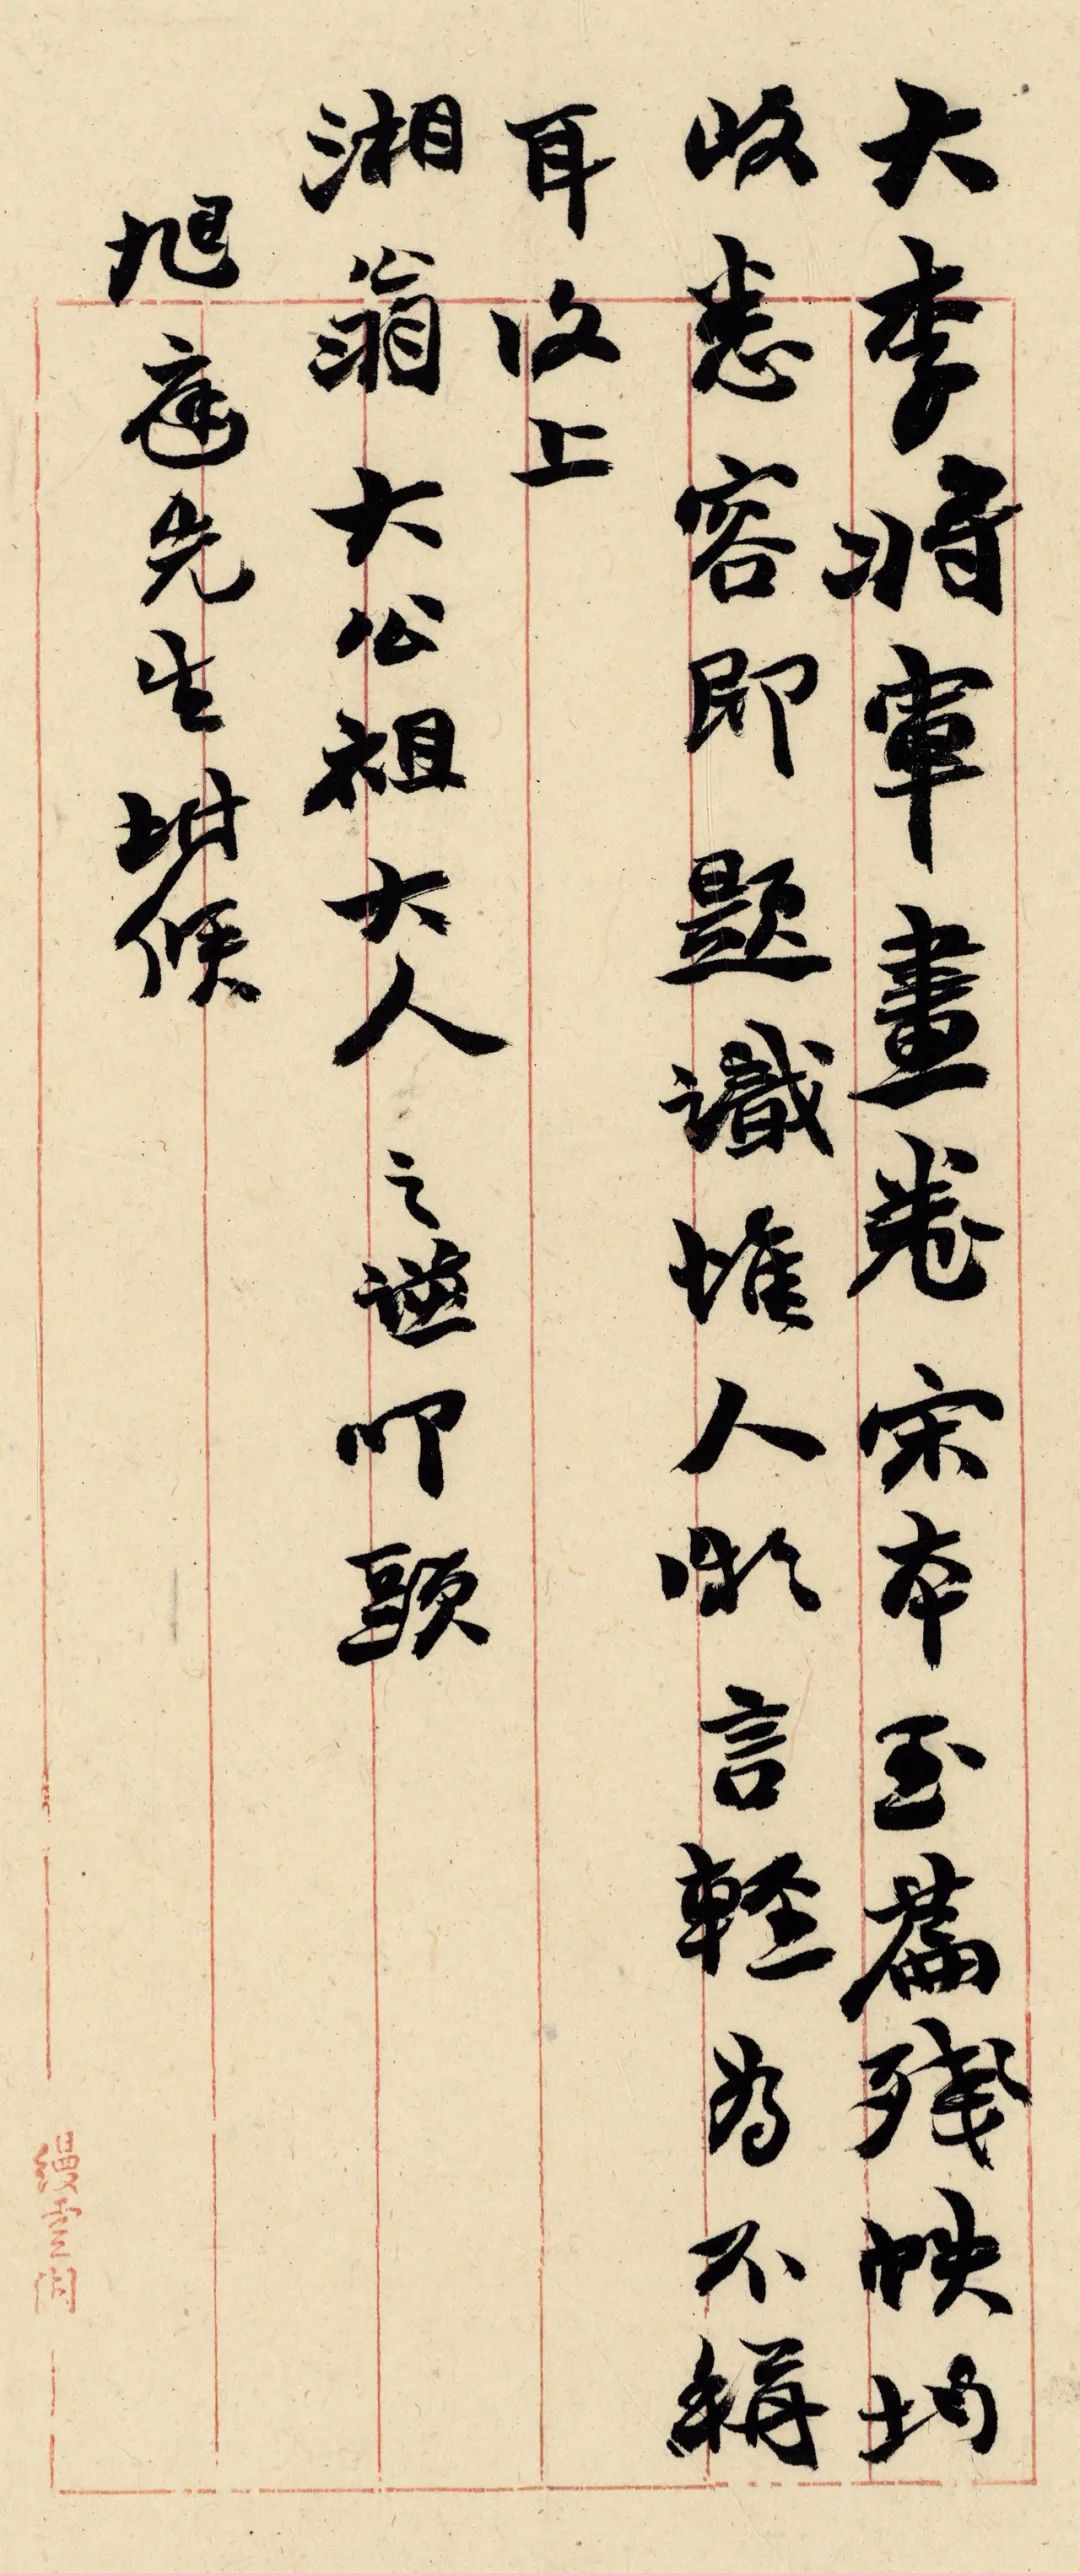 大李将軍畫卷宋本至舊殘帙均
收悉容即題識惟人微言輕為不稱
耳收上
湘翁大公祖大人之谦叩頭
旭庭先生坿候
縵雲閣